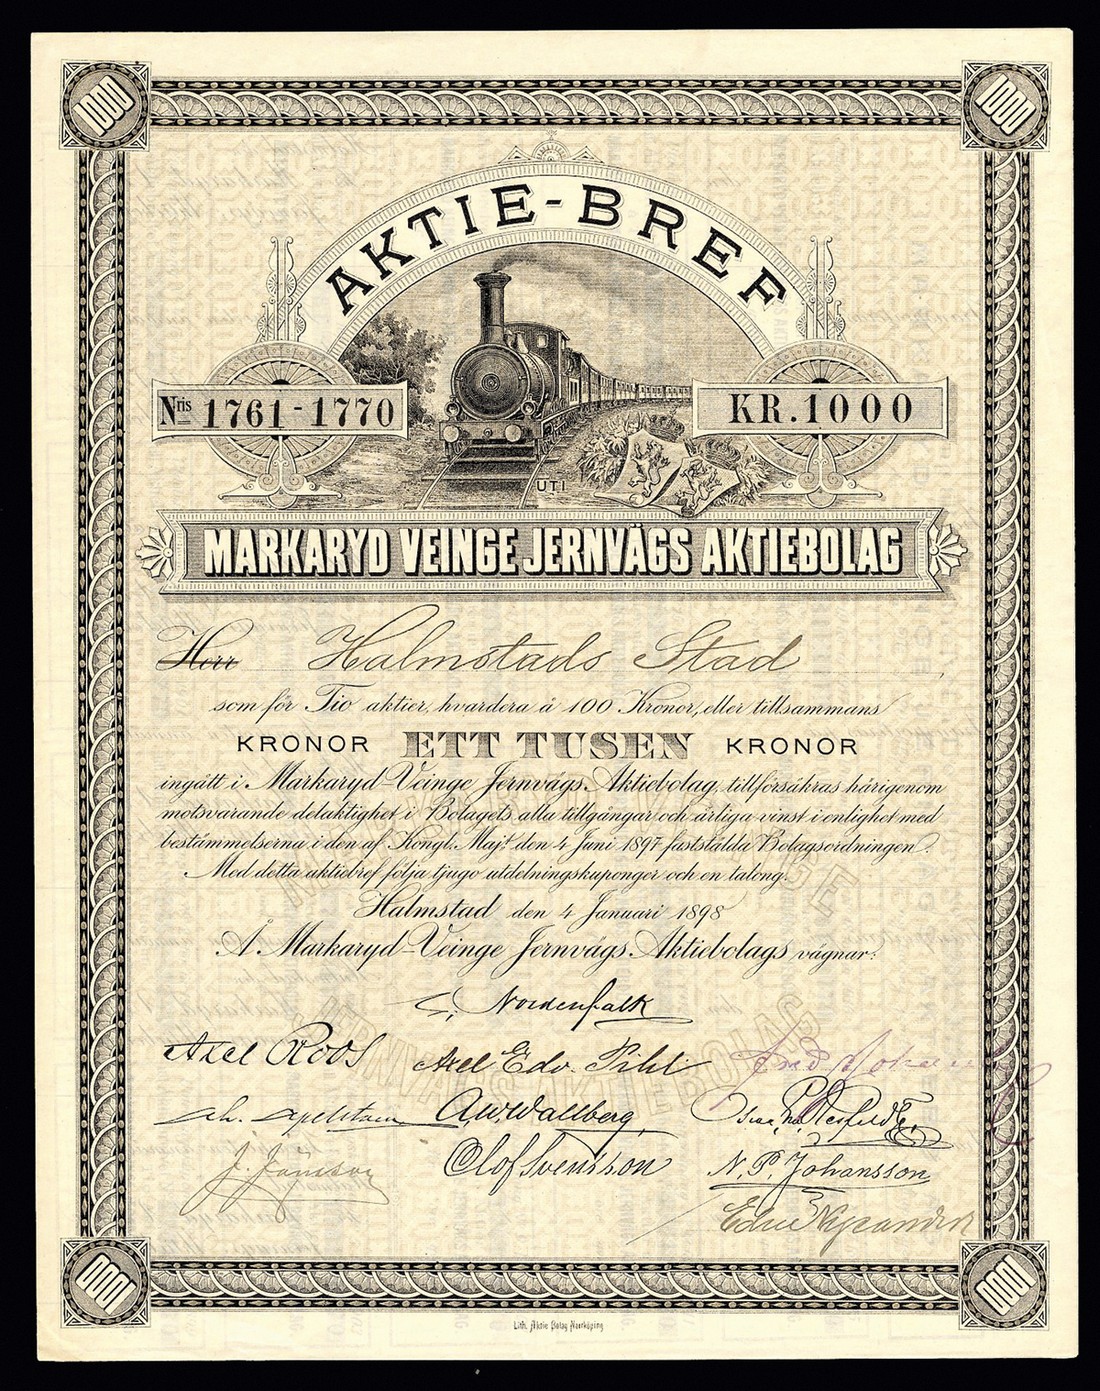 1000
1000
AKTIE-BREF
Nris 1761-1770
KR. 1000
UTI
MARKARYD VEINGE JERNVÄGS AKTIEBOLAG
Herr Halmstads Stad
som för Tio aktier, hvardera à 100 Kronor, eller tillsammans
KRONOR ETT TUSEN KRONOR
ingått i Markaryd-Veinge Jernvägs-Aktiebolag, tillförsäkras härigenom
motsvarande delaktighet i Bolagets alla tillgångar och årliga vinst i enlighet med
bestämmelserna i den af Kongl. Maj:t den 4 Juni 1897 fastställda Bolagsordningen.
Med detta aktiebref följa tjugo utdelningskuponger och en talong.
Halmstad den 4 Januari 1898
Å Markaryd-Veinge Jernvägs-Aktiebolags vägnar:
MARKARYD VEINGE
JERNVÄGS AKTIEBOLAG
C. Nordenfalk
Axel Roos
Axel Edv. Pihl
A.W. Wallberg
Olof Svensson
N. P. Johansson
1000
1000
Lith. Aktie Bolag Norrköping